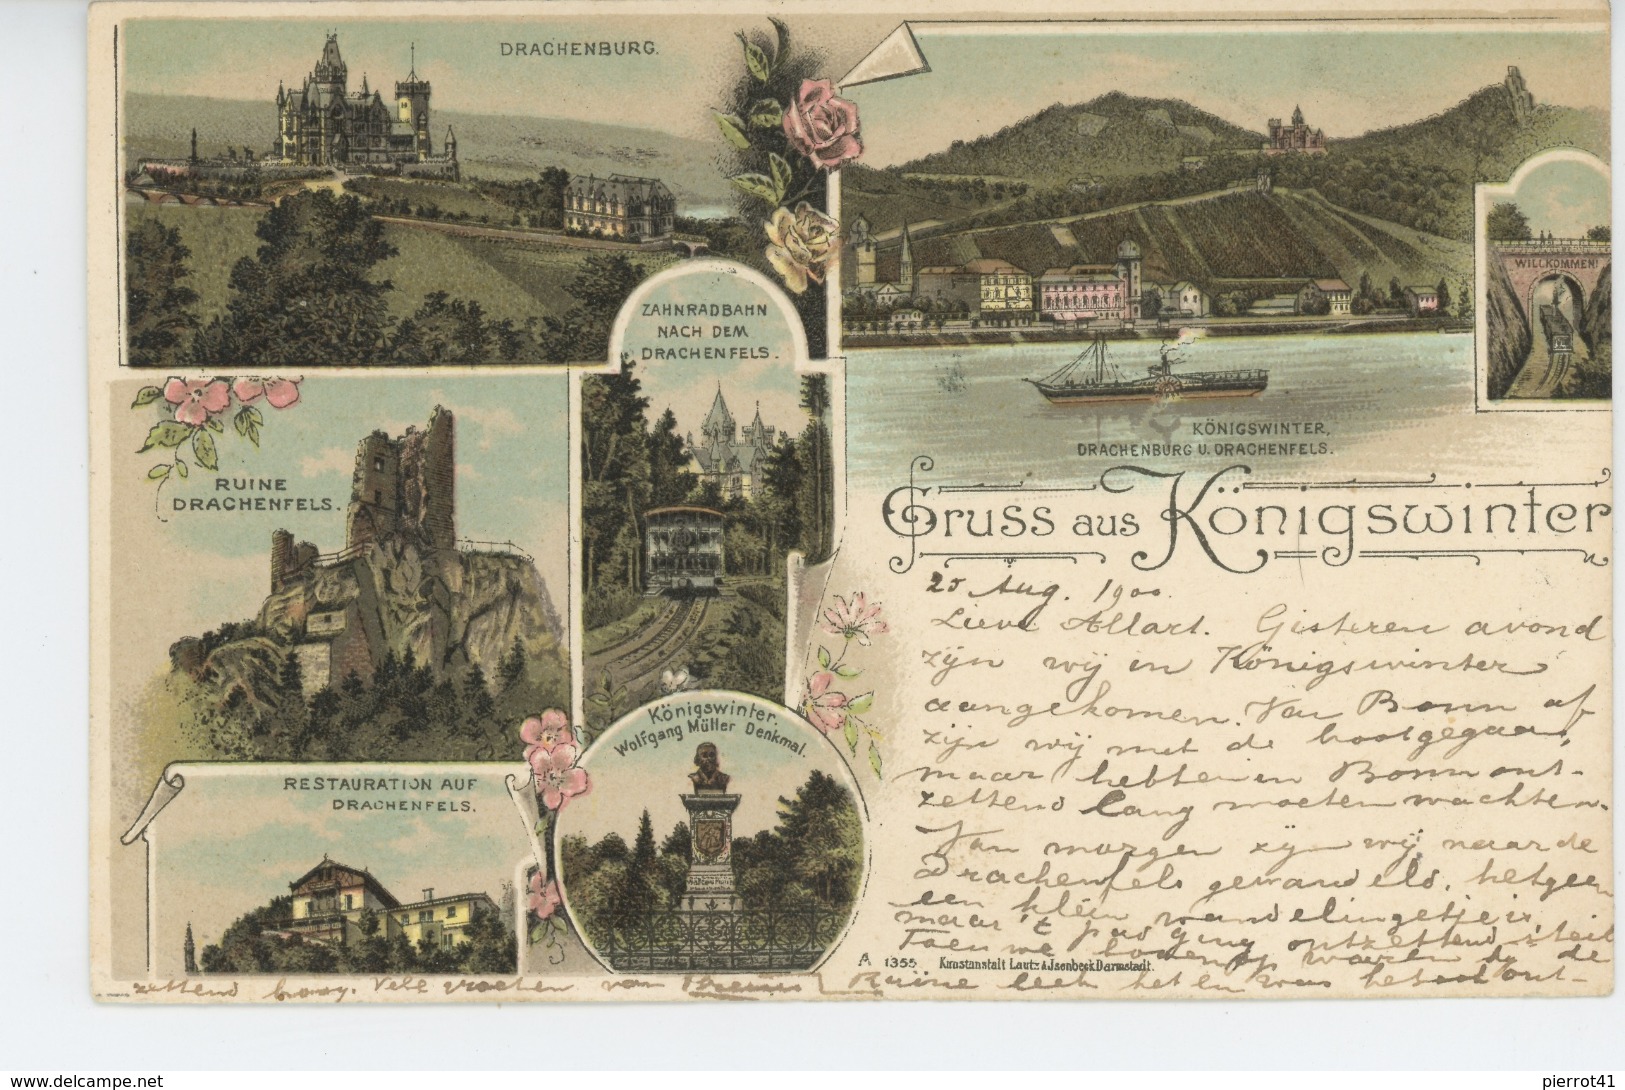 DRACHENBURG.
ZAHNRADBAHN
NACH DEM
DRACHENFELS.
WILLKOMMEN!
KÖNIGSWINTER,
DRACHENBURG U. DRACHENFELS.
RUINE
DRACHENFELS.
Gruss aus Königswinter
RESTAURATION AUF
DRACHENFELS.
Königswinter.
Wolfgang Müller Denkmal.
25 Aug. 1900.
Lieve Allart. Gisteren avond
zijn wij in Königswinter
aangekomen. Van Bonn af
zijn wij met de boot gegaan,
maar hebben in Bonn ont-
zettend lang moeten wachten.
Van morgen zijn wij naar de
Drachenfels gewandeld, hetgeen
een klein wandelingetje is,
maar 't pad ging ontzettend steil
Toen we boven waren bij de
Ruïne leek het en was het ook ont-
zettend hoog. Vele groeten van
A 1355 Kunstanstalt Lautz & Jsenbeck Darmstadt.
www.delcampe.net
pierrot41